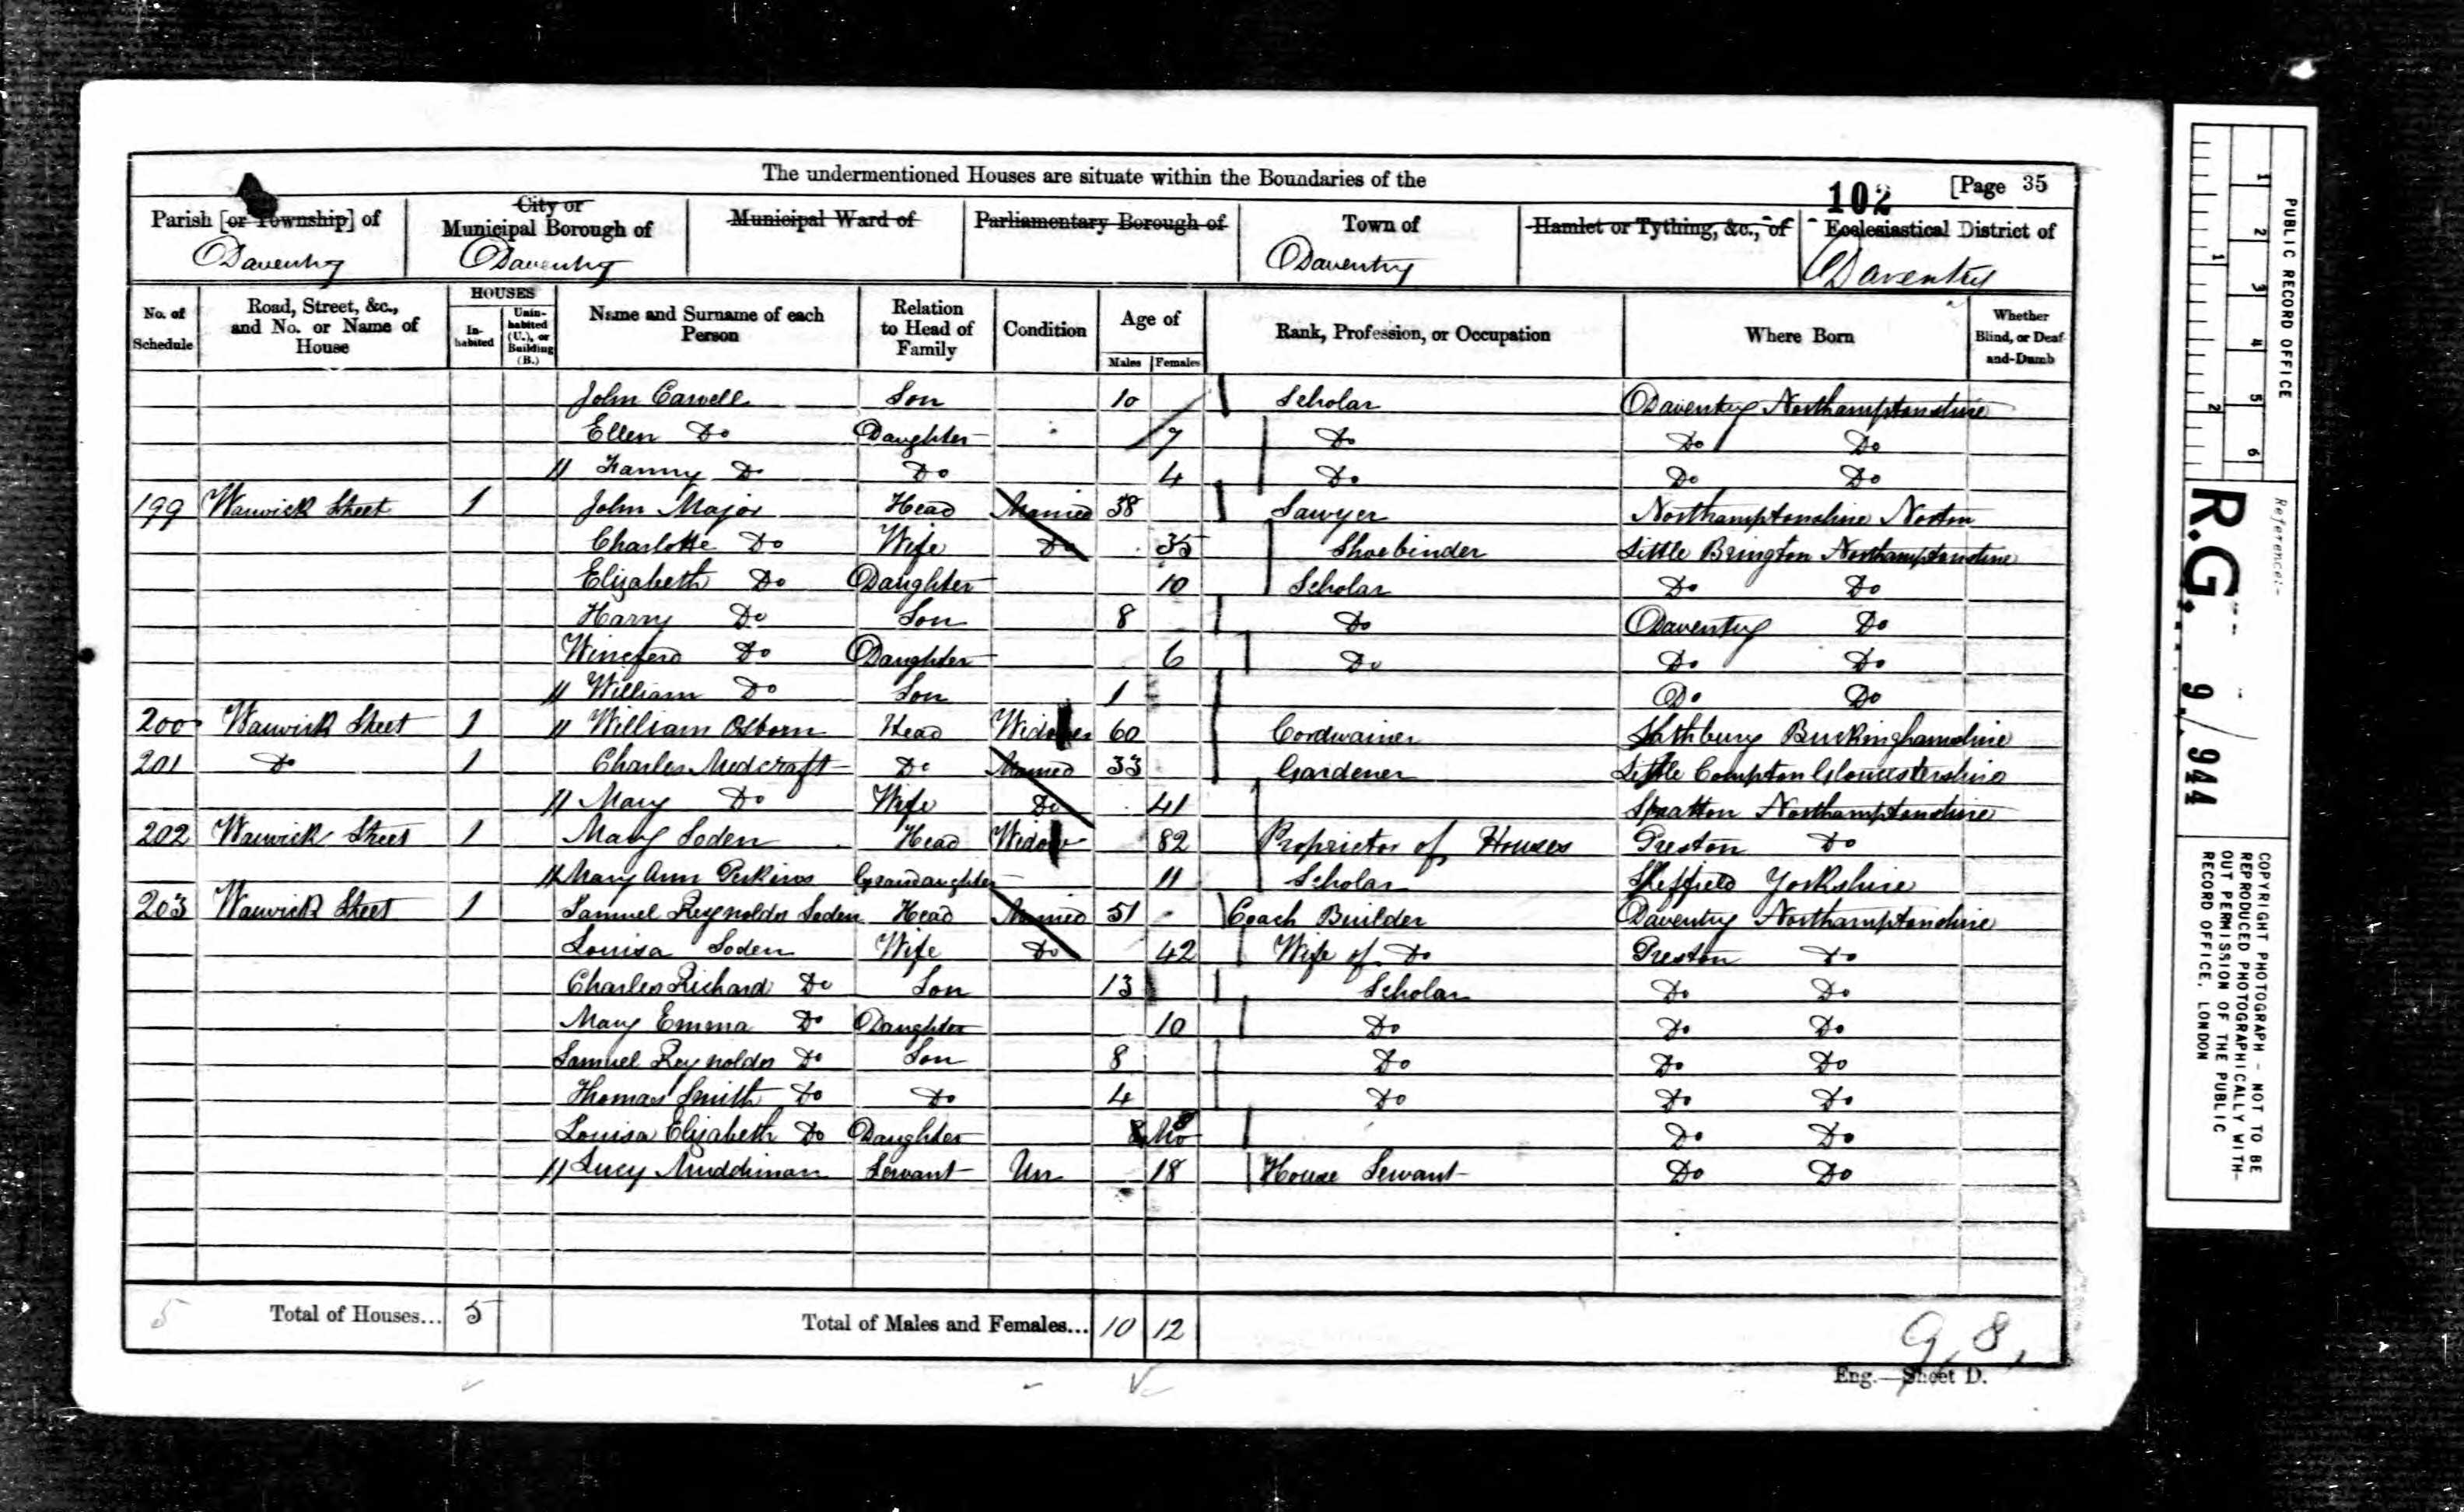 The undermentioned Houses are situate within the Boundaries of the
102 [Page 35
Parish [or Township] of Daventry
City or Municipal Borough of Daventry
Municipal Ward of
Parliamentary Borough of
Town of Daventry
Hamlet or Tything, &c., of
Ecclesiastical District of Daventry
No. of Schedule
Road, Street, &c., and No. or Name of House
HOUSES
In-habited
Unin-habited (U.), or Building (B.)
Name and Surname of each Person
Relation to Head of Family
Condition
Age of
Males Females
Rank, Profession, or Occupation
Where Born
Whether Blind, or Deaf-and-Dumb
John Carvell Son 10 Scholar Daventry Northamptonshire
Ellen Do Daughter 7 Do Do Do
// Fanny Do Do 4 Do Do Do
199 Warwick Street 1 John Major Head Married 38 Sawyer Northamptonshire Norton
Charlotte Do Wife Do 35 Shoebinder Little Brington Northamptonshire
Elizabeth Do Daughter 10 Scholar Do Do
Harry Do Son 8 Do Daventry Do
Do Daughter 6 Do Do Do
// William Do Son 1 Do Do
200 Warwick Street 1 // William Osborn Head Widower 60 Cordwainer Lathbury Buckinghamshire
201 Do 1 Charles Medcraft Do Married 33 Gardener Little Compton Gloucestershire
// Mary Do Wife Do 41 Spratton Northamptonshire
202 Warwick Street 1 Mary Soden Head Widow 82 Proprietor of Houses Preston Do
// Mary Ann Perkins Grandaughter 11 Scholar Sheffield Yorkshire
203 Warwick Street 1 Samuel Reynolds Soden Head Married 51 Coach Builder Daventry Northamptonshire
Louisa Soden Wife Do 42 Wife of Do Preston Do
Charles Richard Do Son 13 Scholar Do Do
Mary Emma Do Daughter 10 Do Do Do
Samuel Reynolds Do Son 8 Do Do Do
Thomas Smith Do Do 4 Do Do Do
Louisa Elizabeth Do Daughter 8 Mo Do Do
// Lucy Muddiman Servant Un 18 House Servant Do Do
5 Total of Houses... 5 Total of Males and Females... 10 12
G, 8,
Eng.—Sheet D.
PUBLIC RECORD OFFICE
1 2 3 4 5 6
1 2
Reference:-
R.G. 9/944
COPYRIGHT PHOTOGRAPH - NOT TO BE
REPRODUCED PHOTOGRAPHICALLY WITH-
OUT PERMISSION OF THE PUBLIC
RECORD OFFICE, LONDON